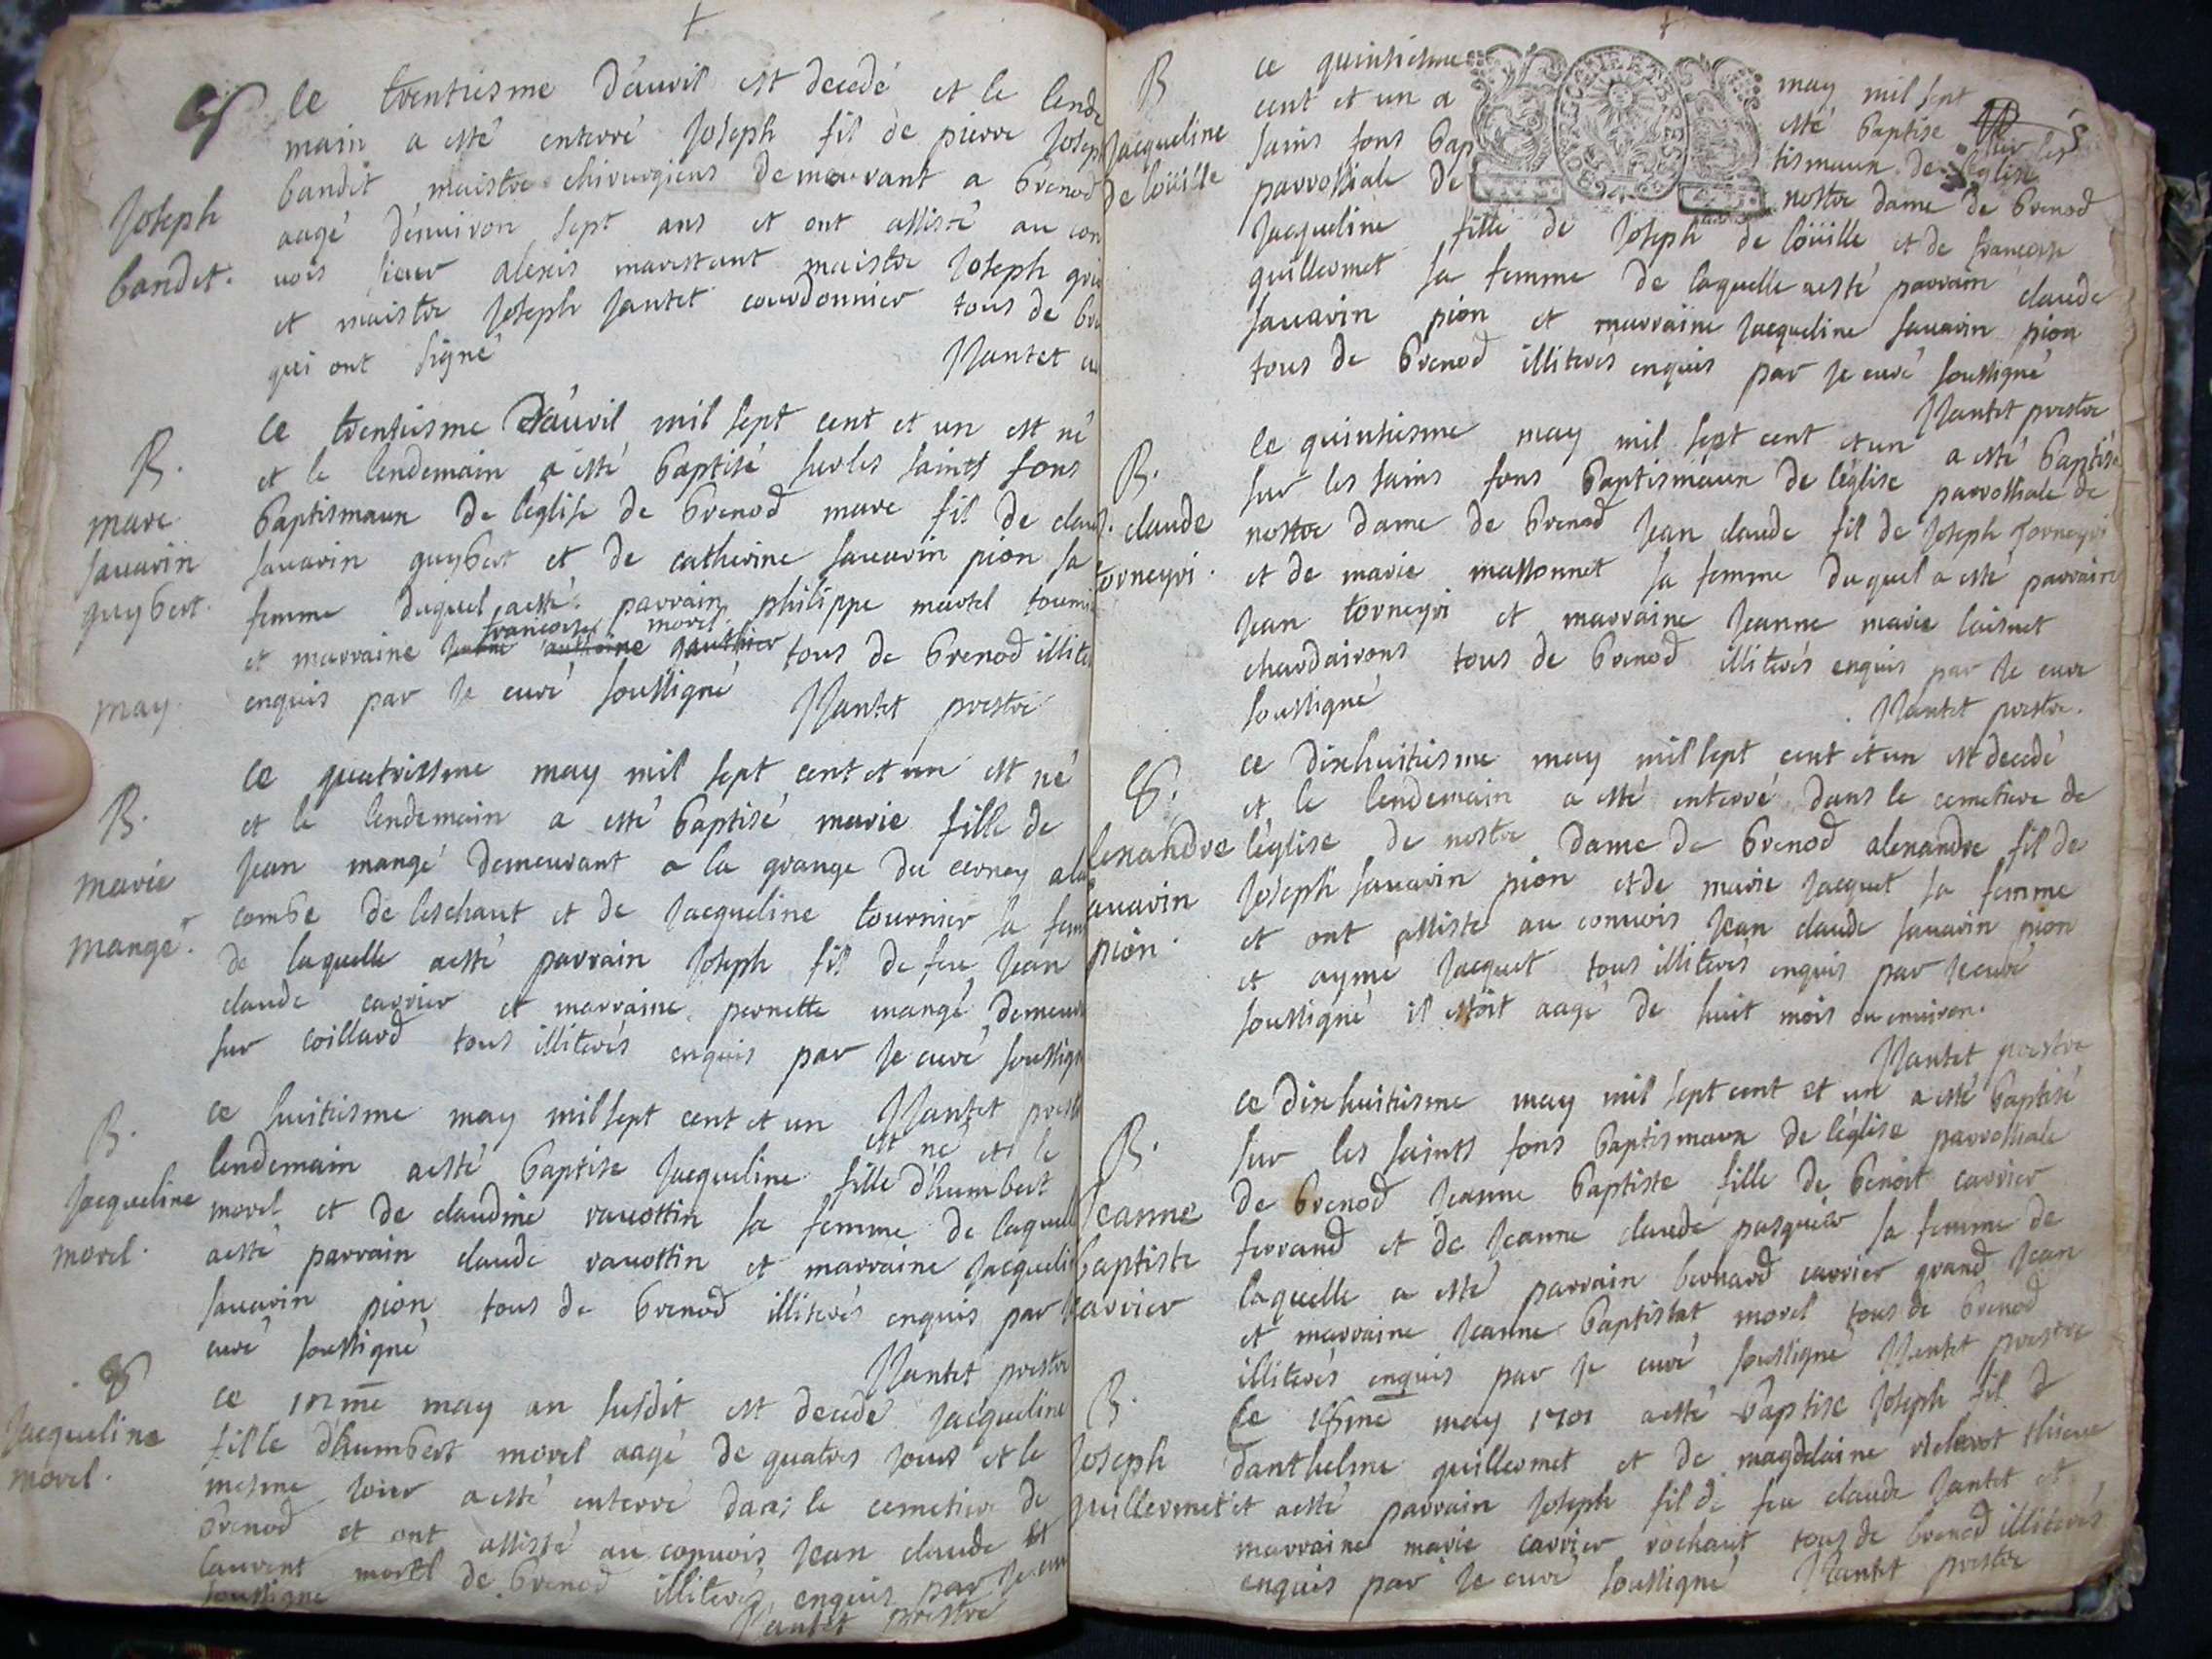 ce trentiesme d'auril est decedé et le lende
main a esté enterré Joseph fil de pierre Joseph
bandet maistre chirurgiens demeurant a brenod
aagé d'enuiron sept ans et ont assisté au con
uois sieur alexis marestant maistre Joseph
et maistre Joseph Jantet courdonnier tous de bre
qui ont signé
Jantet cu
Joseph
bandet.
ce trentiesme d'auril mil sept cent et un est né
et le lendemain a esté baptisé sur les saints fons
baptismaux de l'eglise de brenod marc fil de claud
sauarin guybert et de catherine sauarin pion sa
femme duquel a esté parrain philippe martel
francoise morel
et marraine tous de brenod illite
enquis par Je curé soussigné
Jantet prestre
B.
marc
sauarin
guybert.
may
ce quatriesme may mil sept cent et un est né
et le lendemain a esté baptisé marie fille de
Jean mangé demeurant a la grange du cernay a la
combe de leschaut et de Jacqueline tournier sa fem
de laquelle a esté parrain Joseph fil de feu Jean
claude carrier et marraine pernette mangé demeur
sur coillard tous illiterés enquis par Je curé soussign
B.
marie
mangé.
ce huitiesme may mil sept cent et un Jantet prest
est né et le
lendemain a esté baptise Jacqueline fille d'humbert
morel et de claudine rauottin sa femme de laquell
a esté parrain claude rauottin et marraine Jacqueli
sauarin pion tous de brenod illiterés enquis par J
curé soussigné
Jantet prestre
B.
Jacqueline
morel.
ce 12me may an susdit est decedé Jacqueline
fille d'humbert morel aagé de quatres Jours et le
mesme Jour a esté enterré dans le cemetiere de
brenod et ont assisté au conuois Jean claude et
laurent morel de brenod illiterés enquis par Je cur
soussigné
Jantet prestre
Jacqueline
morel.
ce quinsiesme may mil sept
cent et un a esté baptise sur les
sains fons bap tismaux de l'eglise
parrossiale de nostre dame de brenod
Jacqueline fille de Joseph de loüille et de francoise
guillermet sa femme de laquelle a esté parrain claude
sauarin pion et marraine Jacqueline sauarin pion
tous de brenod illiterés enquis par Je curé soussigné
Jantet prestre
B
Jacqueline
de loüille
le quinsiesme may mil sept cent et un a esté baptisé
sur les sains fons baptismaux de l'eglise parrossiale de
nostre dame de brenod Jean claude fil de Joseph torneyri
et de marie massonnet sa femme duquel a esté parrain
Jean torneyri et marraine Jeanne marie
tous de brenod illiterés enquis par Je curé
soussigné
Jantet prestre.
B.
J. claude
torneyri.
ce dixhuitiesme may mil sept cent et un est decedé
et le lendemain a esté enterré dans le cemetiere de
l'eglise de nostre dame de brenod alexandre fil de
Joseph sauarin pion et de marie Jacquet sa femme
et ont assisté au conuois Jean claude sauarin pion
et aymé Jacquet tous illiterés enquis par Je curé
soussigné il estoit aagé de huit mois ou enuiron.
Jantet prestre
lexandre
auarin
pion.
ce dixhuitiesme may mil sept cent et un a esté baptisé
sur les saints fons baptismaux de l'eglise parrossiale
de brenod Jeanne baptiste fille de benoit carrier
ferrand et de Jeanne claude pasquier sa femme de
laquelle a esté parrain bernard carrier grand Jean
et marraine Jeanne baptistat morel tous de brenod
illiterés enquis par Je curé soussigné Jantet prestre
B.
Jeanne
baptiste
carrier
ce may 1701 a esté baptisé Joseph fil d
danthelme guillermet et de magdelaine
et a esté parrain Joseph fil de feu claude Jantet et
marraine marie carrier rochaut tous de brenod illiterés
enquis par Je curé soussigné Jantet prestre
B.
Joseph
guillermet